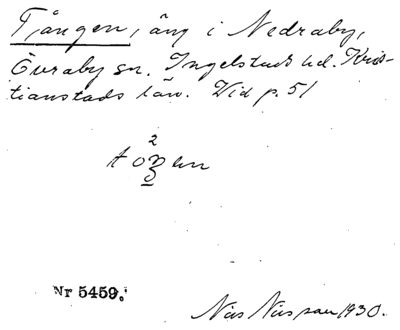 Tången, äng i Nedraby,
Övraby sn. Ingelstads hd. Kris-
tianstads län. Vid p. 51
Nr 5459.
Nils Nilsson 1930.